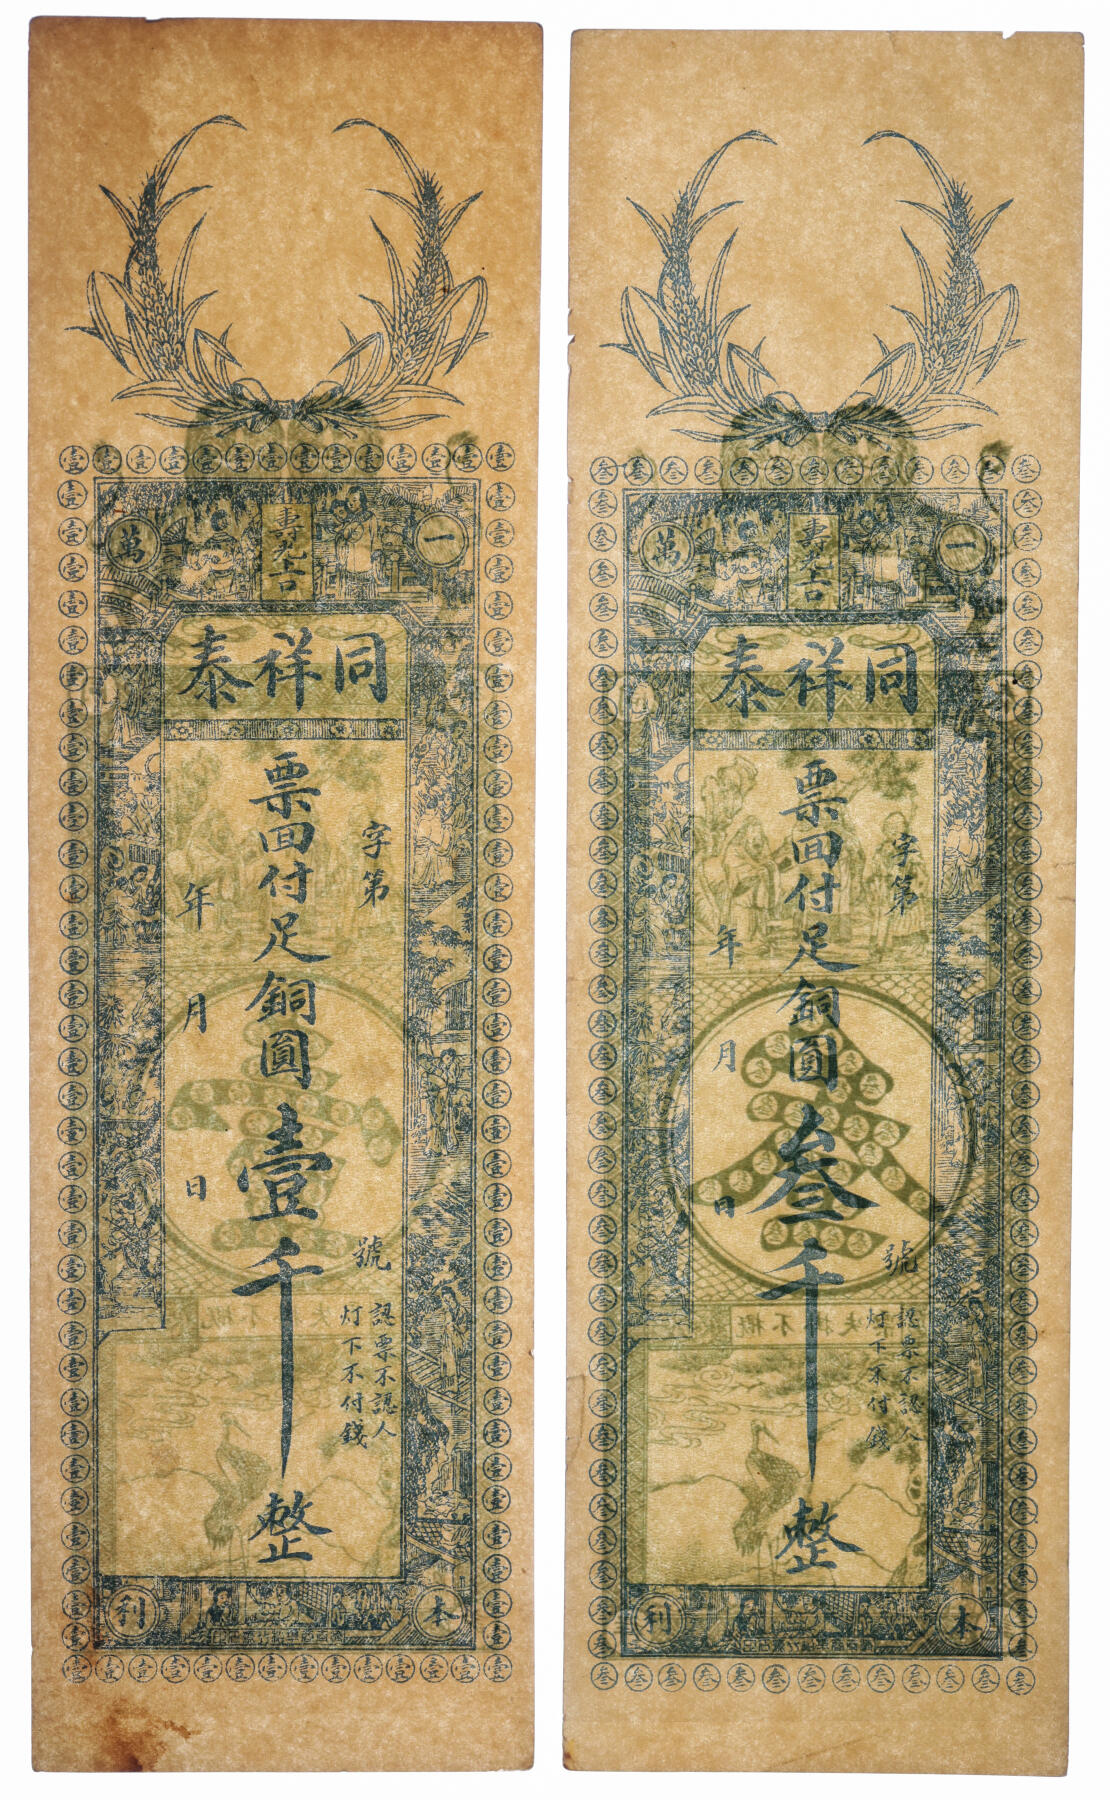 壽光上口
一
萬
同祥泰
字第
號
認票不認人
灯下不付錢
票回付足銅圓壹千整
年
月
日
本
利
壽光上口
一
萬
同祥泰
字第
號
認票不認人
灯下不付錢
票回付足銅圓叁千整
年
月
日
本
利